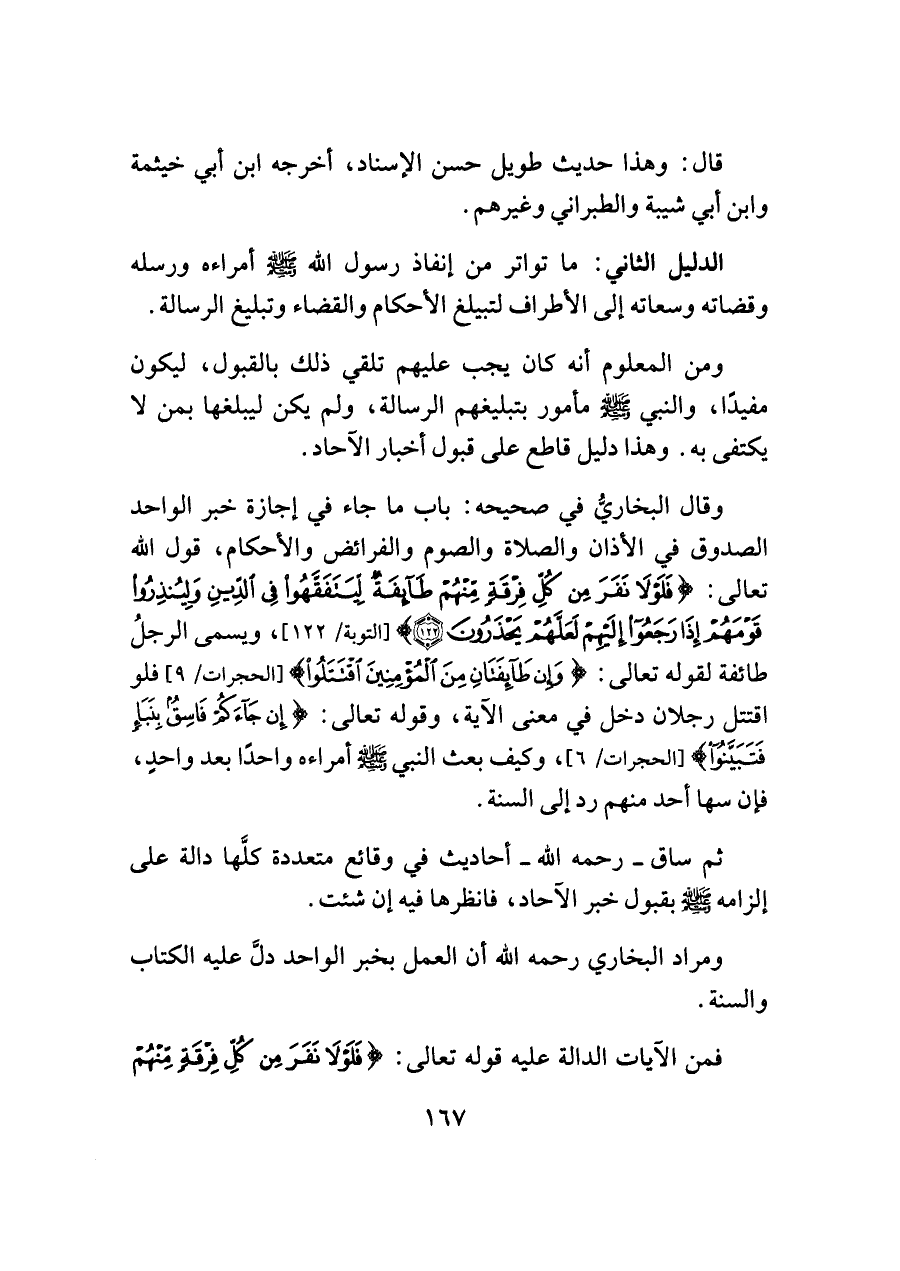 قال: وهذا حديث طويل حسن الإسناد، أخرجه ابن أبي خيثمة
وابن أبي شيبة والطبراني وغيرهم.
الدليل الثاني: ما تواتر من إنفاذ رسول الله ﷺ أمراءه ورسله
وقضاته وسعاته إلى الأطراف لتبيلغ الأحكام والقضاء وتبليغ الرسالة.
ومن المعلوم أنه كان يجب عليهم تلقي ذلك بالقبول، ليكون
مفيدًا، والنبي ﷺ مأمور بتبليغهم الرسالة، ولم يكن ليبلغها بمن لا
يكتفى به. وهذا دليل قاطع على قبول أخبار الآحاد.
وقال البخاريُّ في صحيحه: باب ما جاء في إجازة خبر الواحد
الصدوق في الأذان والصلاة والصوم والفرائض والأحكام، قول الله
تعالى: ﴿فَلَوْلَا نَفَرَ مِن كُلِّ فِرْقَةٍ مِّنْهُمْ طَآئِفَةٌ لِّيَتَفَقَّهُواْ فِى ٱلدِّينِ وَلِيُنذِرُواْ
قَوْمَهُمْ إِذَا رَجَعُوٓاْ إِلَيْهِمْ لَعَلَّهُمْ يَحْذَرُونَ ۝١٢٢﴾ [التوبة/ ١٢٢]، ويسمى الرجلُ
طائفة لقوله تعالى: ﴿وَإِن طَآئِفَتَانِ مِنَ ٱلْمُؤْمِنِينَ ٱقْتَتَلُواْ﴾ [الحجرات/ ٩] فلو
اقتتل رجلان دخل في معنى الآية، وقوله تعالى: ﴿إِن جَآءَكُمْ فَاسِقُۢ بِنَبَإٍ
فَتَبَيَّنُوٓاْ﴾ [الحجرات/ ٦]، وكيف بعث النبي ﷺ أمراءه واحدًا بعد واحدٍ،
فإن سها أحد منهم رد إلى السنة.
ثم ساق ـ رحمه الله ـ أحاديث في وقائع متعددة كلَّها دالة على
إلزامه ﷺ بقبول خبر الآحاد، فانظرها فيه إن شئت.
ومراد البخاري رحمه الله أن العمل بخبر الواحد دلَّ عليه الكتاب
والسنة.
فمن الآيات الدالة عليه قوله تعالى: ﴿فَلَوْلَا نَفَرَ مِن كُلِّ فِرْقَةٍ مِّنْهُمْ
١٦٧